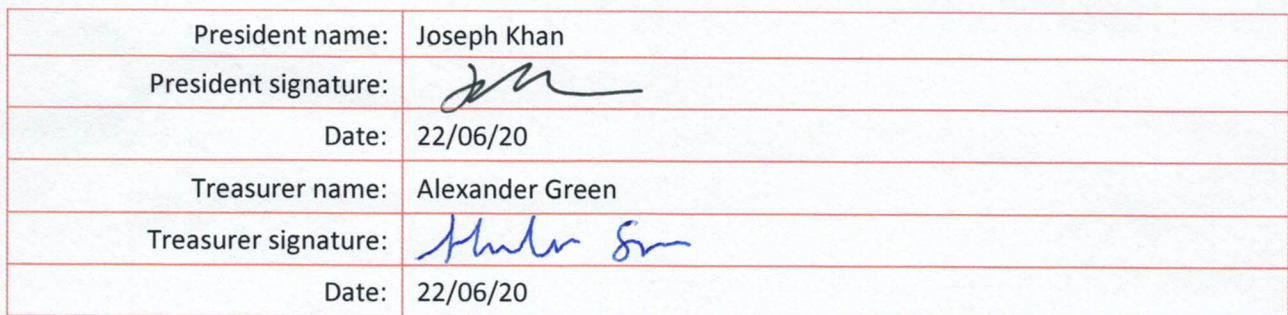 President name: Joseph Khan
President signature:
Date: 22/06/20
Treasurer name: Alexander Green
Treasurer signature:
Date: 22/06/20